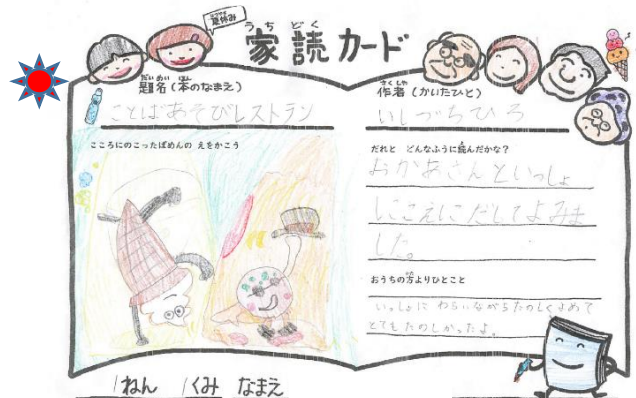 夏休み
家読カード
うちどく
題名(本のなまえ)
だいめい
ことばあそびレストラン
こころにのこったばめんの えをかこう
作者(かいたひと)
さくしゃ
いしづちひろ
だれと どんなふうに読んだかな?
おかあさんといっしょ
にこえにだしてよみま
した。
おうちの方よりひとこと
いっしょに わらいながらたのしくよめて
とてもたのしかったよ。
1ねん 1くみ なまえ